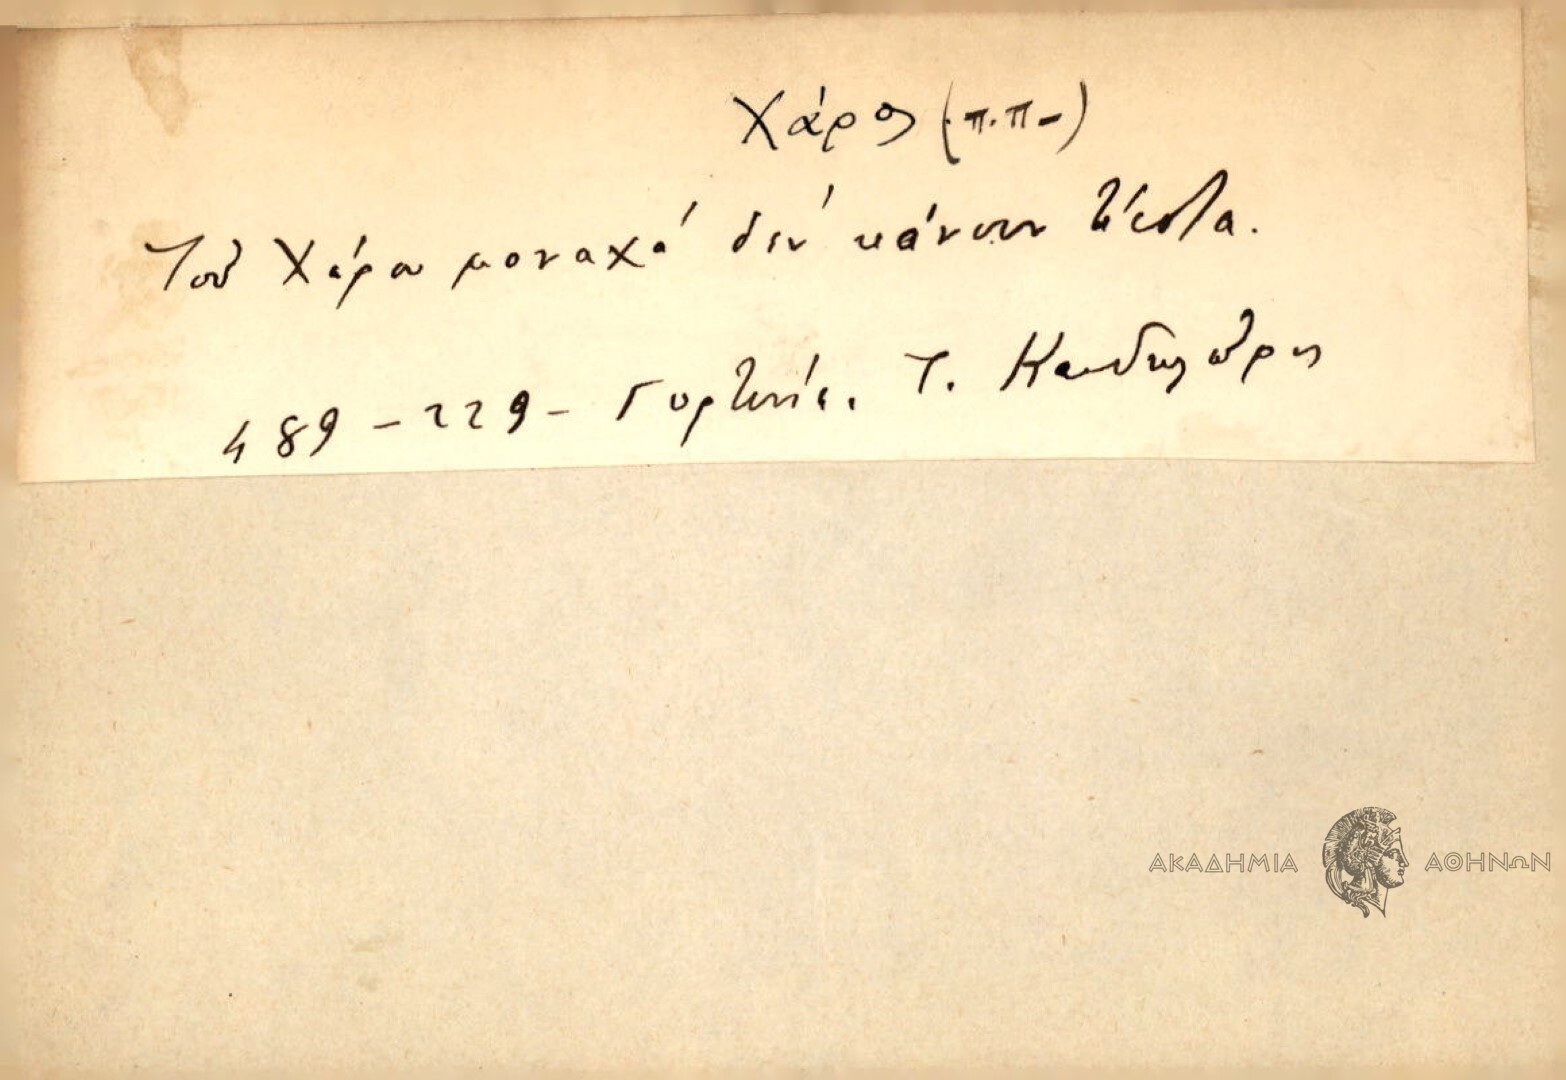 Χάρος (π.π-)
Τοῦ Χάρου μοναχά δέν κάνουν
489 - 229 - Γορτυνία. Τ. Κανδηλώρης
ΑΚΑΔΗΜΙΑ ΑΘΗΝΩΝ